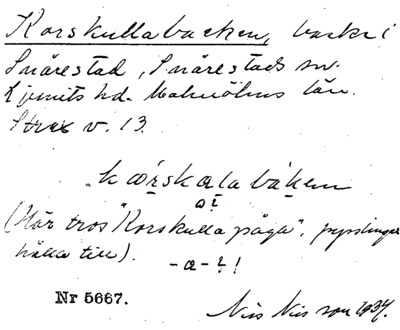 Korskullabacken, backe i
Snårestad, Snårestads sn.
Ljunits hd. Malmöhus län.
Strax v. 13.
kårskalabákem
(Här tros "Korskulla påga", pysslingar
hålla till).
-a-!
Nr 5667.
Nils Nilsson 1934.